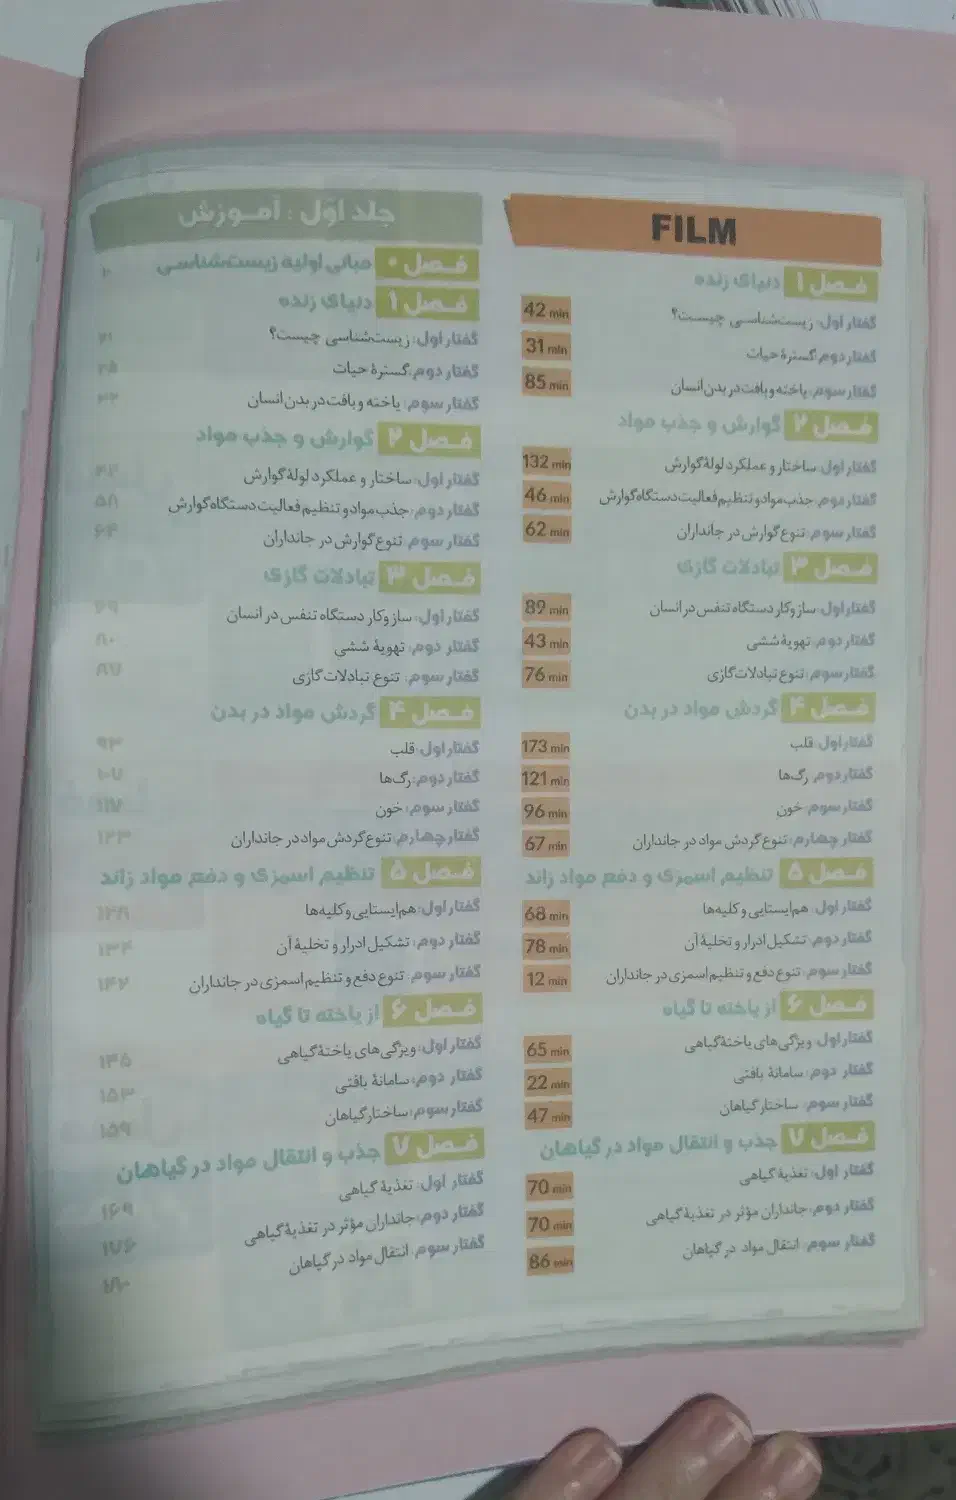 FILM
فصل ۱ دنیای زنده
گفتار اول: زیست‌شناسی چیست؟ 42 min
گفتار دوم: گسترهٔ حیات 31 min
گفتار سوم: یاخته و بافت در بدن انسان 85 min
فصل ۲ گوارش و جذب مواد
گفتار اول: ساختار و عملکرد لولهٔ گوارش 132 min
گفتار دوم: جذب مواد و تنظیم فعالیت دستگاه گوارش 46 min
گفتار سوم: تنوع گوارش در جانداران 62 min
فصل ۳ تبادلات گازی
گفتار اول: ساز و کار دستگاه تنفس در انسان 89 min
گفتار دوم: تهویهٔ ششی 43 min
گفتار سوم: تنوع تبادلات گازی 76 min
فصل ۴ گردش مواد در بدن
گفتار اول: قلب 173 min
گفتار دوم: رگ‌ها 121 min
گفتار سوم: خون 96 min
گفتار چهارم: تنوع گردش مواد در جانداران 67 min
فصل ۵ تنظیم اسمزی و دفع مواد زائد
گفتار اول: هم‌ایستایی و کلیه‌ها 68 min
گفتار دوم: تشکیل ادرار و تخلیهٔ آن 78 min
گفتار سوم: تنوع دفع و تنظیم اسمزی در جانداران 12 min
فصل ۶ از یاخته تا گیاه
گفتار اول: ویژگی‌های یاختهٔ گیاهی 65 min
گفتار دوم: سامانهٔ بافتی 22 min
گفتار سوم: ساختار گیاهان 47 min
فصل ۷ جذب و انتقال مواد در گیاهان
گفتار اول: تغذیهٔ گیاهی 70 min
گفتار دوم: جانداران مؤثر در تغذیهٔ گیاهی 70 min
گفتار سوم: انتقال مواد در گیاهان 86 min
جلد اول : آموزش
فصل ۰ مبانی اولیه زیست‌شناسی
فصل ۱ دنیای زنده
گفتار اول: زیست‌شناسی چیست؟ ۲۱
گفتار دوم: گسترهٔ حیات
گفتار سوم: یاخته و بافت در بدن انسان
فصل ۲ گوارش و جذب مواد
گفتار اول: ساختار و عملکرد لولهٔ گوارش
گفتار دوم: جذب مواد و تنظیم فعالیت دستگاه گوارش ۵۸
گفتار سوم: تنوع گوارش در جانداران ۶۴
فصل ۳ تبادلات گازی
گفتار اول: ساز و کار دستگاه تنفس در انسان
گفتار دوم: تهویهٔ ششی ۸۰
گفتار سوم: تنوع تبادلات گازی ۸۷
فصل ۴ گردش مواد در بدن
گفتار اول: قلب ۹۳
گفتار دوم: رگ‌ها ۱۰۷
گفتار سوم: خون ۱۱۷
گفتار چهارم: تنوع گردش مواد در جانداران ۱۲۳
فصل ۵ تنظیم اسمزی و دفع مواد زائد
گفتار اول: هم‌ایستایی و کلیه‌ها ۱۲۸
گفتار دوم: تشکیل ادرار و تخلیهٔ آن ۱۳۴
گفتار سوم: تنوع دفع و تنظیم اسمزی در جانداران ۱۴۲
فصل ۶ از یاخته تا گیاه
گفتار اول: ویژگی‌های یاختهٔ گیاهی ۱۴۵
گفتار دوم: سامانهٔ بافتی ۱۵۳
گفتار سوم: ساختار گیاهان ۱۵۹
فصل ۷ جذب و انتقال مواد در گیاهان
گفتار اول: تغذیهٔ گیاهی ۱۶۹
گفتار دوم: جانداران مؤثر در تغذیهٔ گیاهی ۱۷۶
گفتار سوم: انتقال مواد در گیاهان ۱۸۰